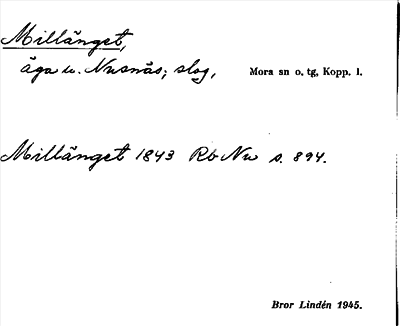 Millänget,
äga u. Nusnäs; slog, Mora sn o. tg, Kopp. l.
Millänget 1843 Rb Nu s. 894.
Bror Lindén 1945.